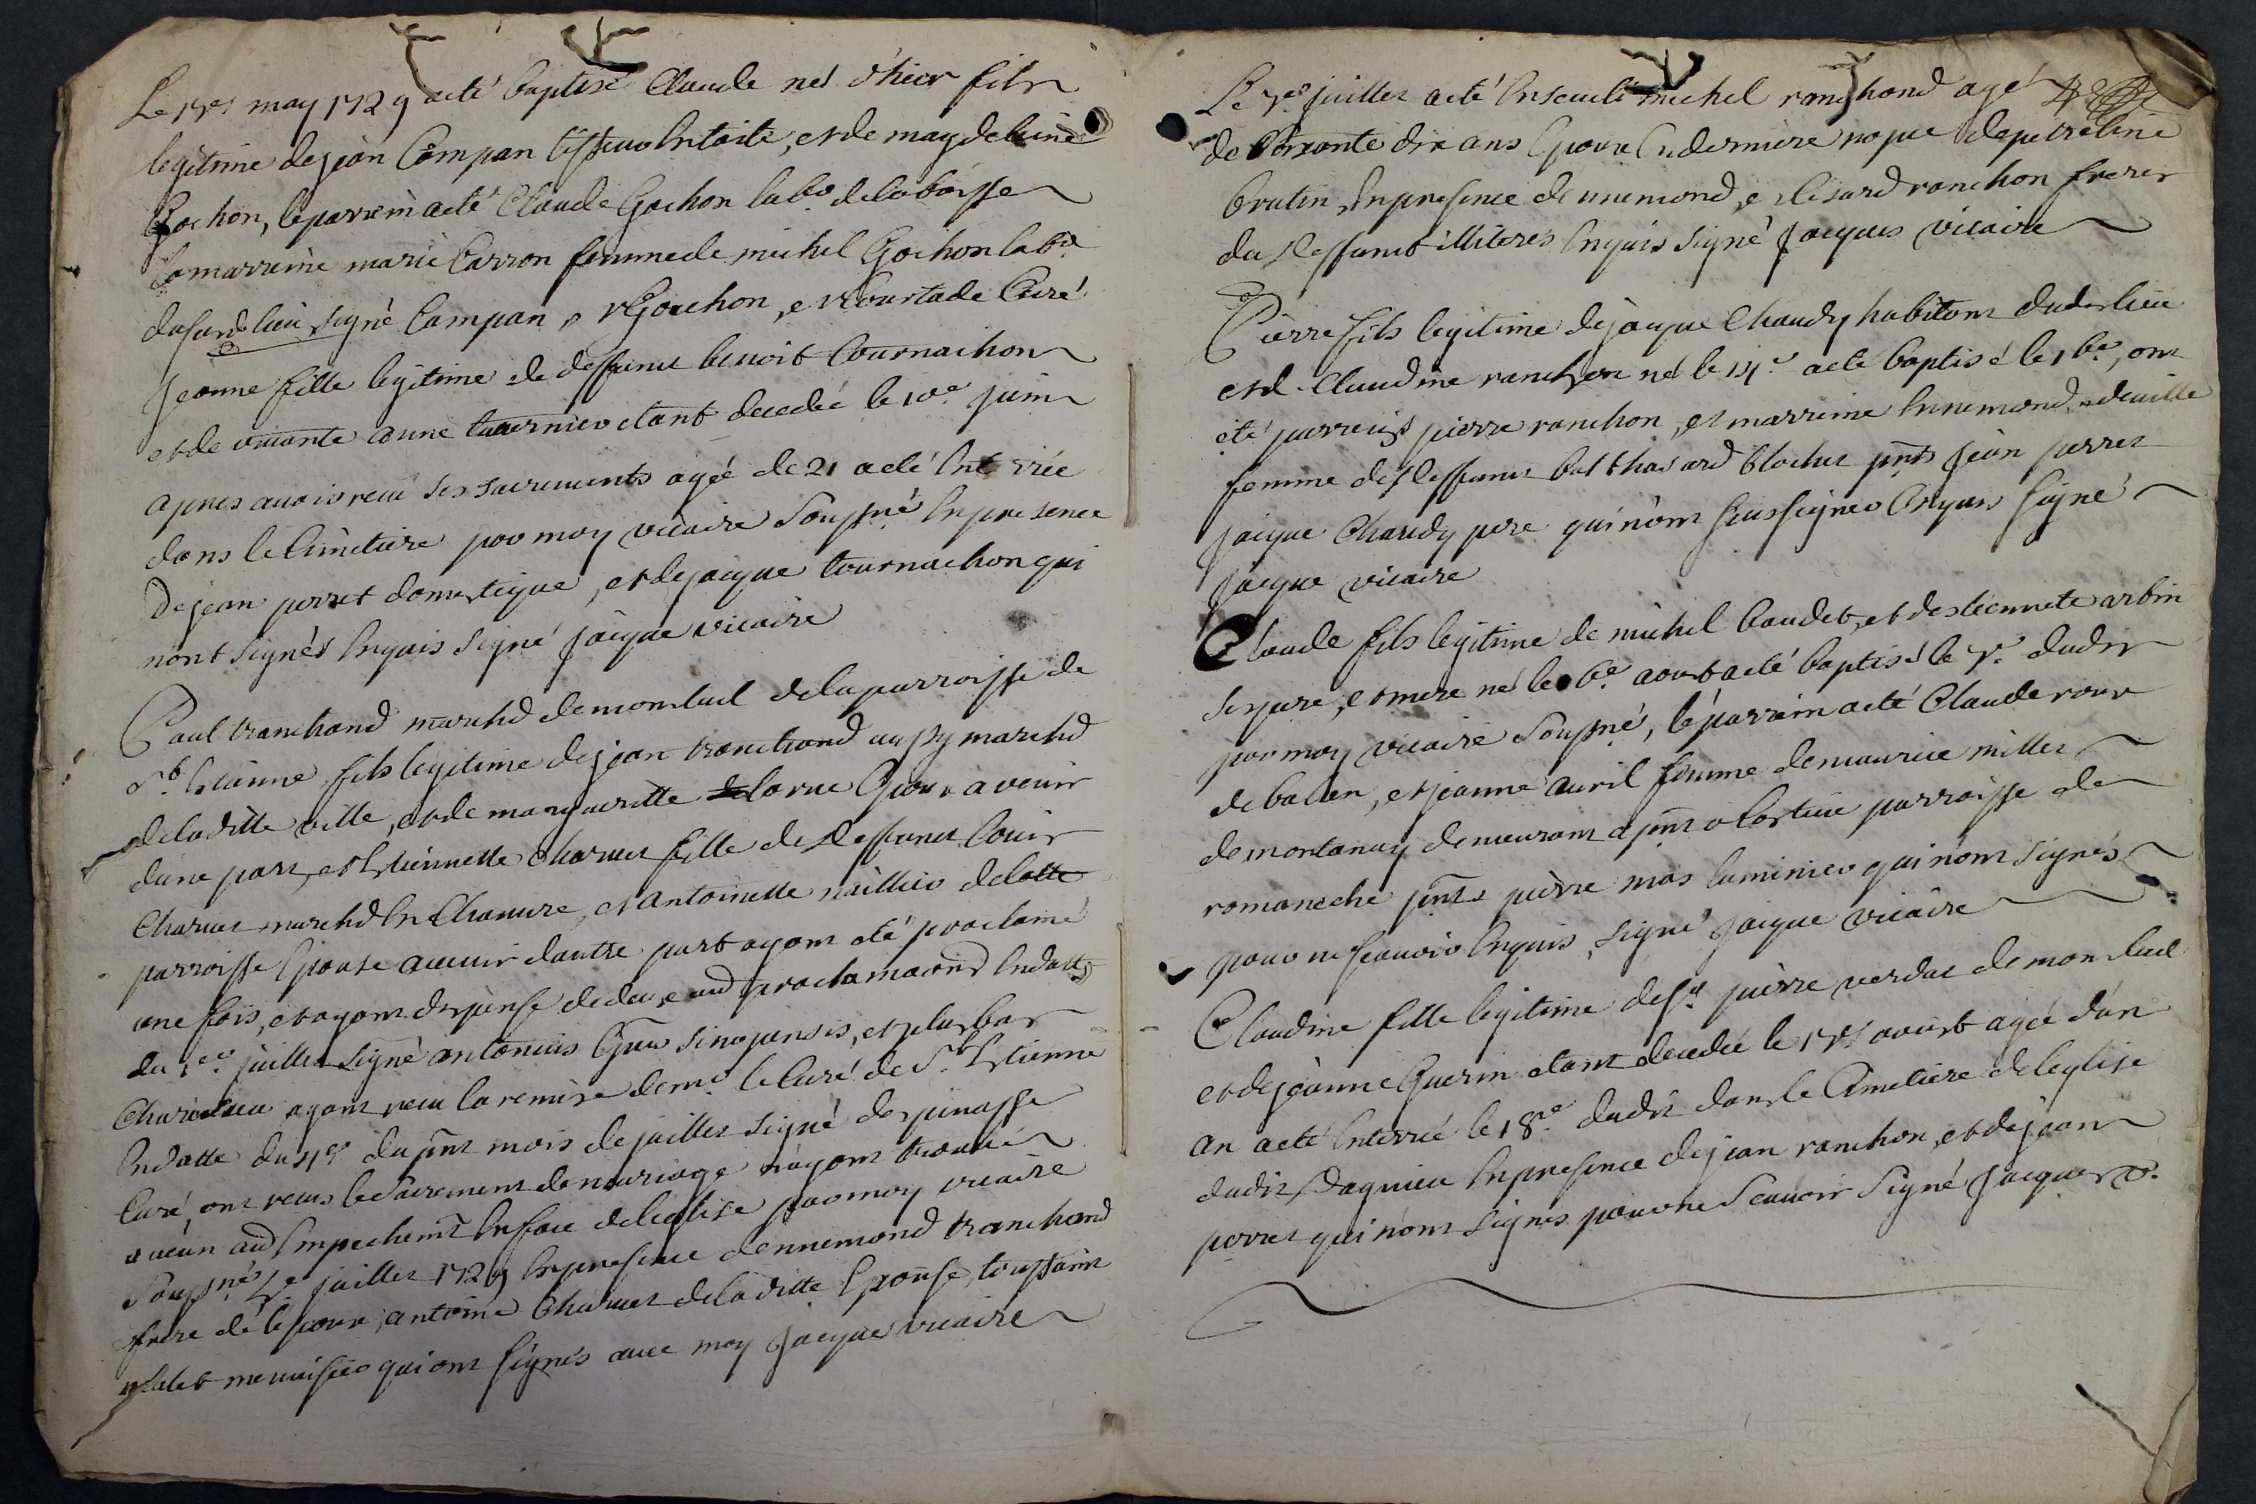 Le may 1729 acté baptisé Claude né d'hier fils
legitime de jean Campan tissieur , et de magdeleine
Gochon, le parrein acté Claude Gochon labr de laboisse
la marreine marie Carron femme de michel Gochon labr
dususd lieu signé Campan, Gouchon, et Courtade Curé
Jeanne fille legitime de deffunct benoit tournachon
et de vivante anne tavernier etant decedée le 10e juin
apres avoir receu ses sacrements agée de 21 acté enterrée
dans le Cimetiere par moy vicaire soussné en presence
De jean perret domestique, et de jacque tournachon qui
nont signés enquis signé jacque vicaire
Paul tranchand marchd de monluel de la parroisse de
St Etienne fils legitime de jean tranchand aussy marchd
de laditte ville, et de marguerite de larue Epoux avenir
dune part, et Etiennette Charvet fille de deffunct Louis
Charvet marchd en Chanvre, et antoinette de latte
parroisse Epouse avenir dautre part ayant eté proclamé
une fois, et ayant dispense de deux aud proclamaond en datte
du juillet signé antonius sinopensis, et plus bas
ayant receu la remise de mr le Curé de St Etienne
en datte du 4e du pnt mois de juillet signé despinasse
Curé, ont receus le Sacrement de mariage nayant trouvé
aucun aud empechemt en face de leglise par moy vicaire
soussné juillet 1729 en presence dennemond tranchand
frere de lepoux, antoine Charvet de laditte Epouse, toussaint
valet menuisier qui ont signés avec moy jacque vicaire
Le 7e juillet acté enseveli michel ranchond agé
de soixante dix ans Epoux en derniere nopce de petreline
brutin, en presence de ennemond, et ranchon freres
du deffunct illiterés enquis signé jacques vicaire
Pierre fils legitime de jacque Chaudy habitant dudt lieu
et de Claudine ranchon né le 14e acté baptisé le 16e, ont
eté parrein pierre ranchon, et marreine ennemonde deville
femme de deffunct balthasard blachet pnts jean perret
jacque Chaudy pere qui n'ont sceu signer enquis signé
jacque vicaire
Claude fils legitime de michel baudet, et destiennete arbin
ses pere, et mere né le 6e aoust acté baptisé le 7e dudt
par moy vicaire soussné, le parrain acté Claude roux
de balan, et jeanne avril femme de maurice millet
de montanay demeurant a pnt parroisse de
romaneche pnts pierre mas luminier qui nont signés
pour ne scavoir enquis signé jacque vicaire
Claudine fille legitime de sr pierre verdat de monluel
et de jeanne Guerin etant decedée le 17e aoust agée d'un
an acté enterrée le 18e dudt dans le Cimetiere de leglise
dudit Dagnieu en presence de jean ranchon, et de jean
perret qui n'ont signés pour ne Scavoir signé jacque v.